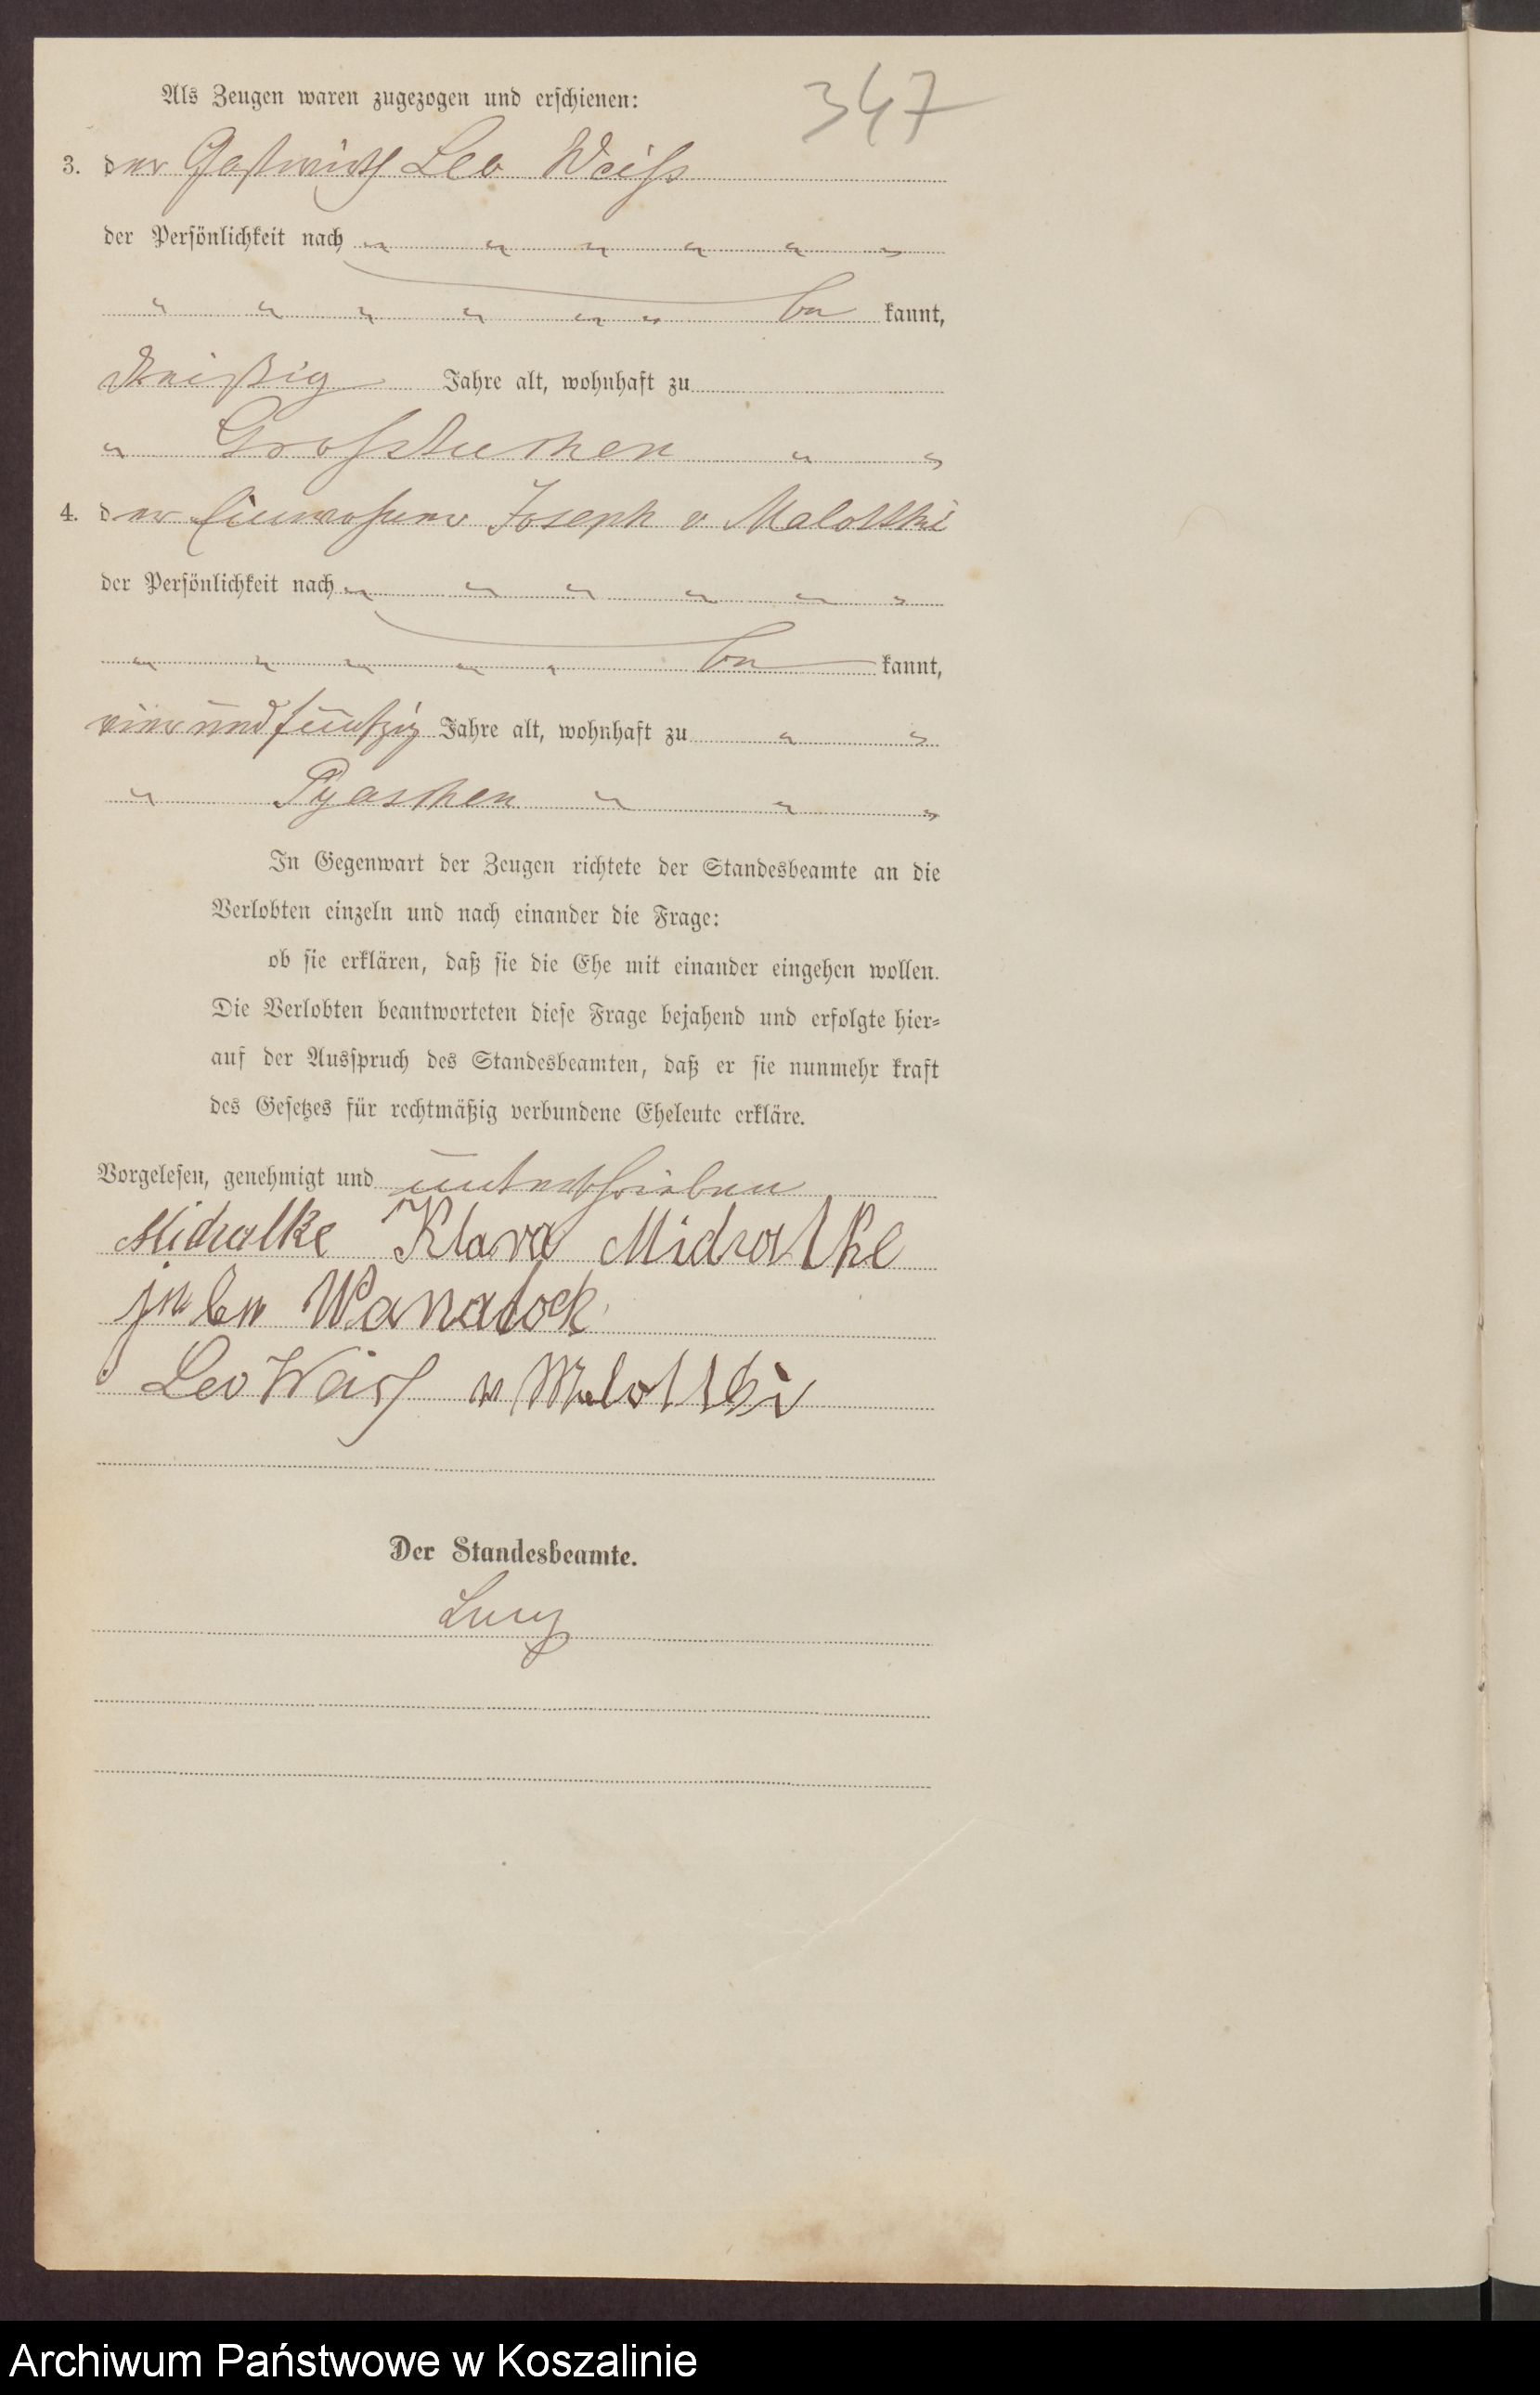 347
Als Zeugen waren zugezogen und erschienen:
3. der Gastwirth Leo Weiß
der Persönlichkeit nach
be kannt,
dreißig Jahre alt, wohnhaft zu
Großtuchen
4. der Einwohner Joseph v Malottki
der Persönlichkeit nach
be kannt,
einundfünfzig Jahre alt, wohnhaft zu
Pyaschen
In Gegenwart der Zeugen richtete der Standesbeamte an die
Verlobten einzeln und nach einander die Frage:
ob sie erklären, daß sie die Ehe mit einander eingehen wollen.
Die Verlobten beantworteten diese Frage bejahend und erfolgte hier-
auf der Ausspruch des Standesbeamten, daß er sie nunmehr kraft
des Gesetzes für rechtmäßig verbundene Eheleute erkläre.
Vorgelesen, genehmigt und unterschrieben
Midralke Klara Midralke
jeben Wanatock
Leo Weiß v Malottki
Der Standesbeamte.
Archiwum Państwowe w Koszalinie